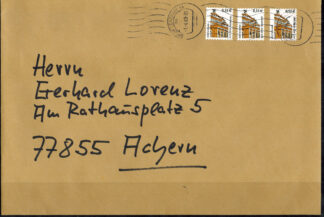 Herrn
Gerhard Lorenz
Am Rathausplatz 5
77855 Achern